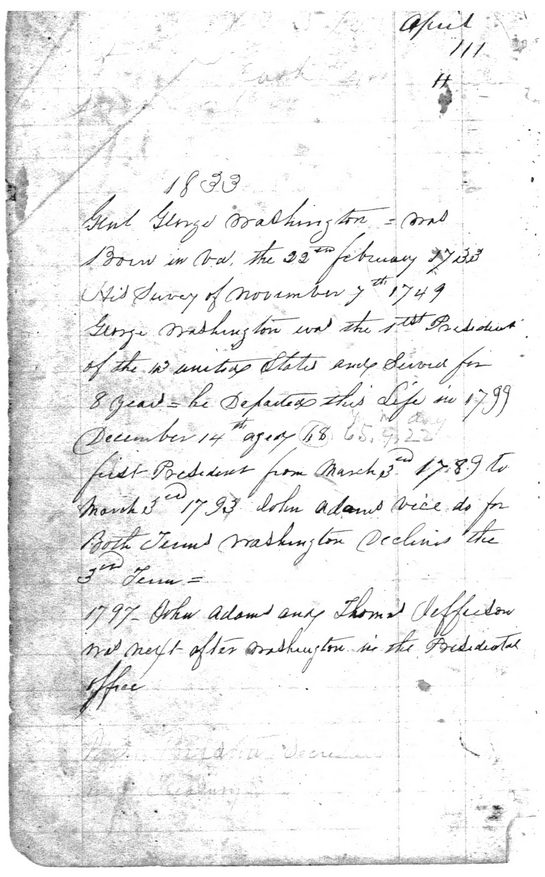 April
111
H
1833
Genl George Washington = was
Born in Va. the 22nd february 1733
His Survey of November 7th 1749
George Washington was the 1st President
of the united States and Served for
8 years = he Departed this Life in 1799
December 14th aged 68 65. 9. 22
first President from March 3rd 1789 to
March 3rd 1793 John Adams vice do for
Both Terms Washington Declines the
3rd Term =
1797 - John Adams and Thomas Jefferson
was next after Washington in the Presidential
office